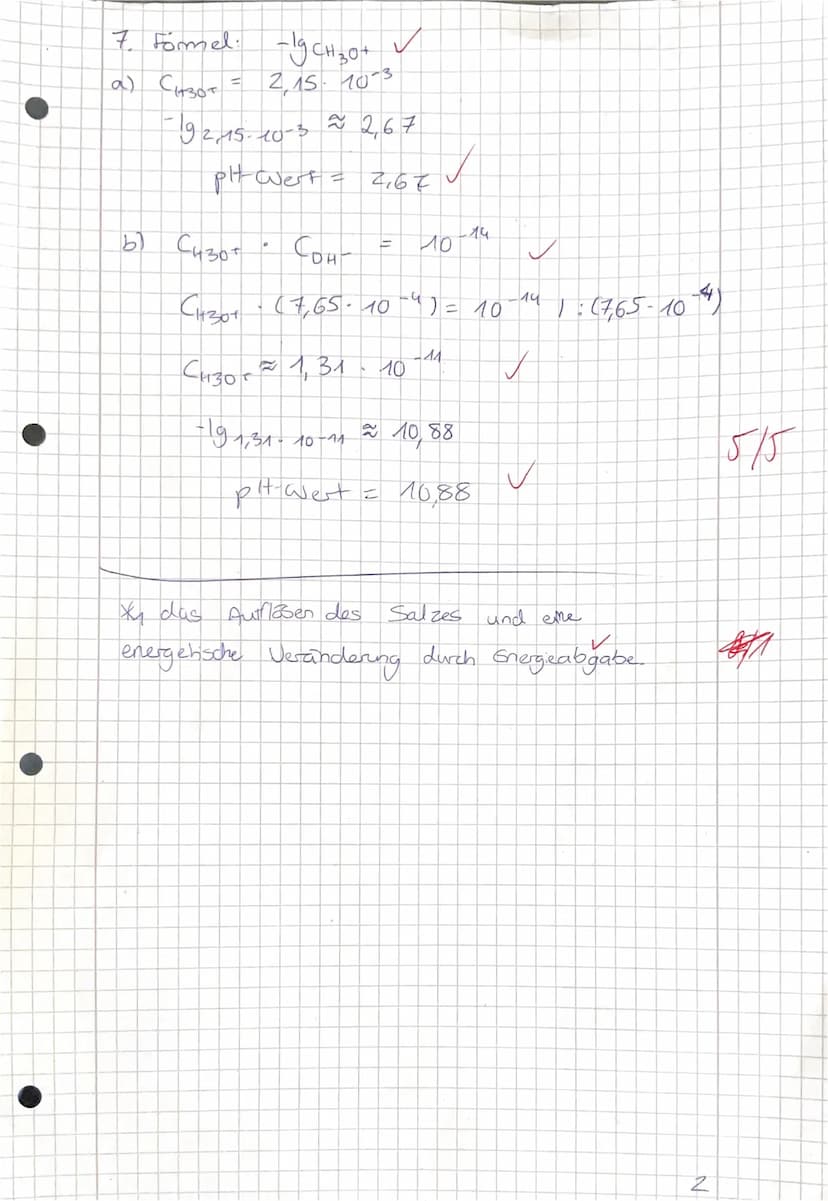 7. Formel: -lg cH3O+ ✓
a) cH3O+ = 2,15 · 10^-3
-lg 2,15 · 10^-3 ≈ 2,67
pH-Wert = 2,67 ✓
b) cH3O+ · cOH- = 10^-14 ✓
cH3O+ · (7,65 · 10^-4) = 10^-14 | : (7,65 · 10^-4)
cH3O+ ≈ 1,31 · 10^-11 ✓
-lg 1,31 · 10^-11 ≈ 10,88
5/5
pH-Wert = 10,88 ✓
*1 das Auflösen des Salzes und eine
energetische Veränderung durch Energieabgabe. ✓
2